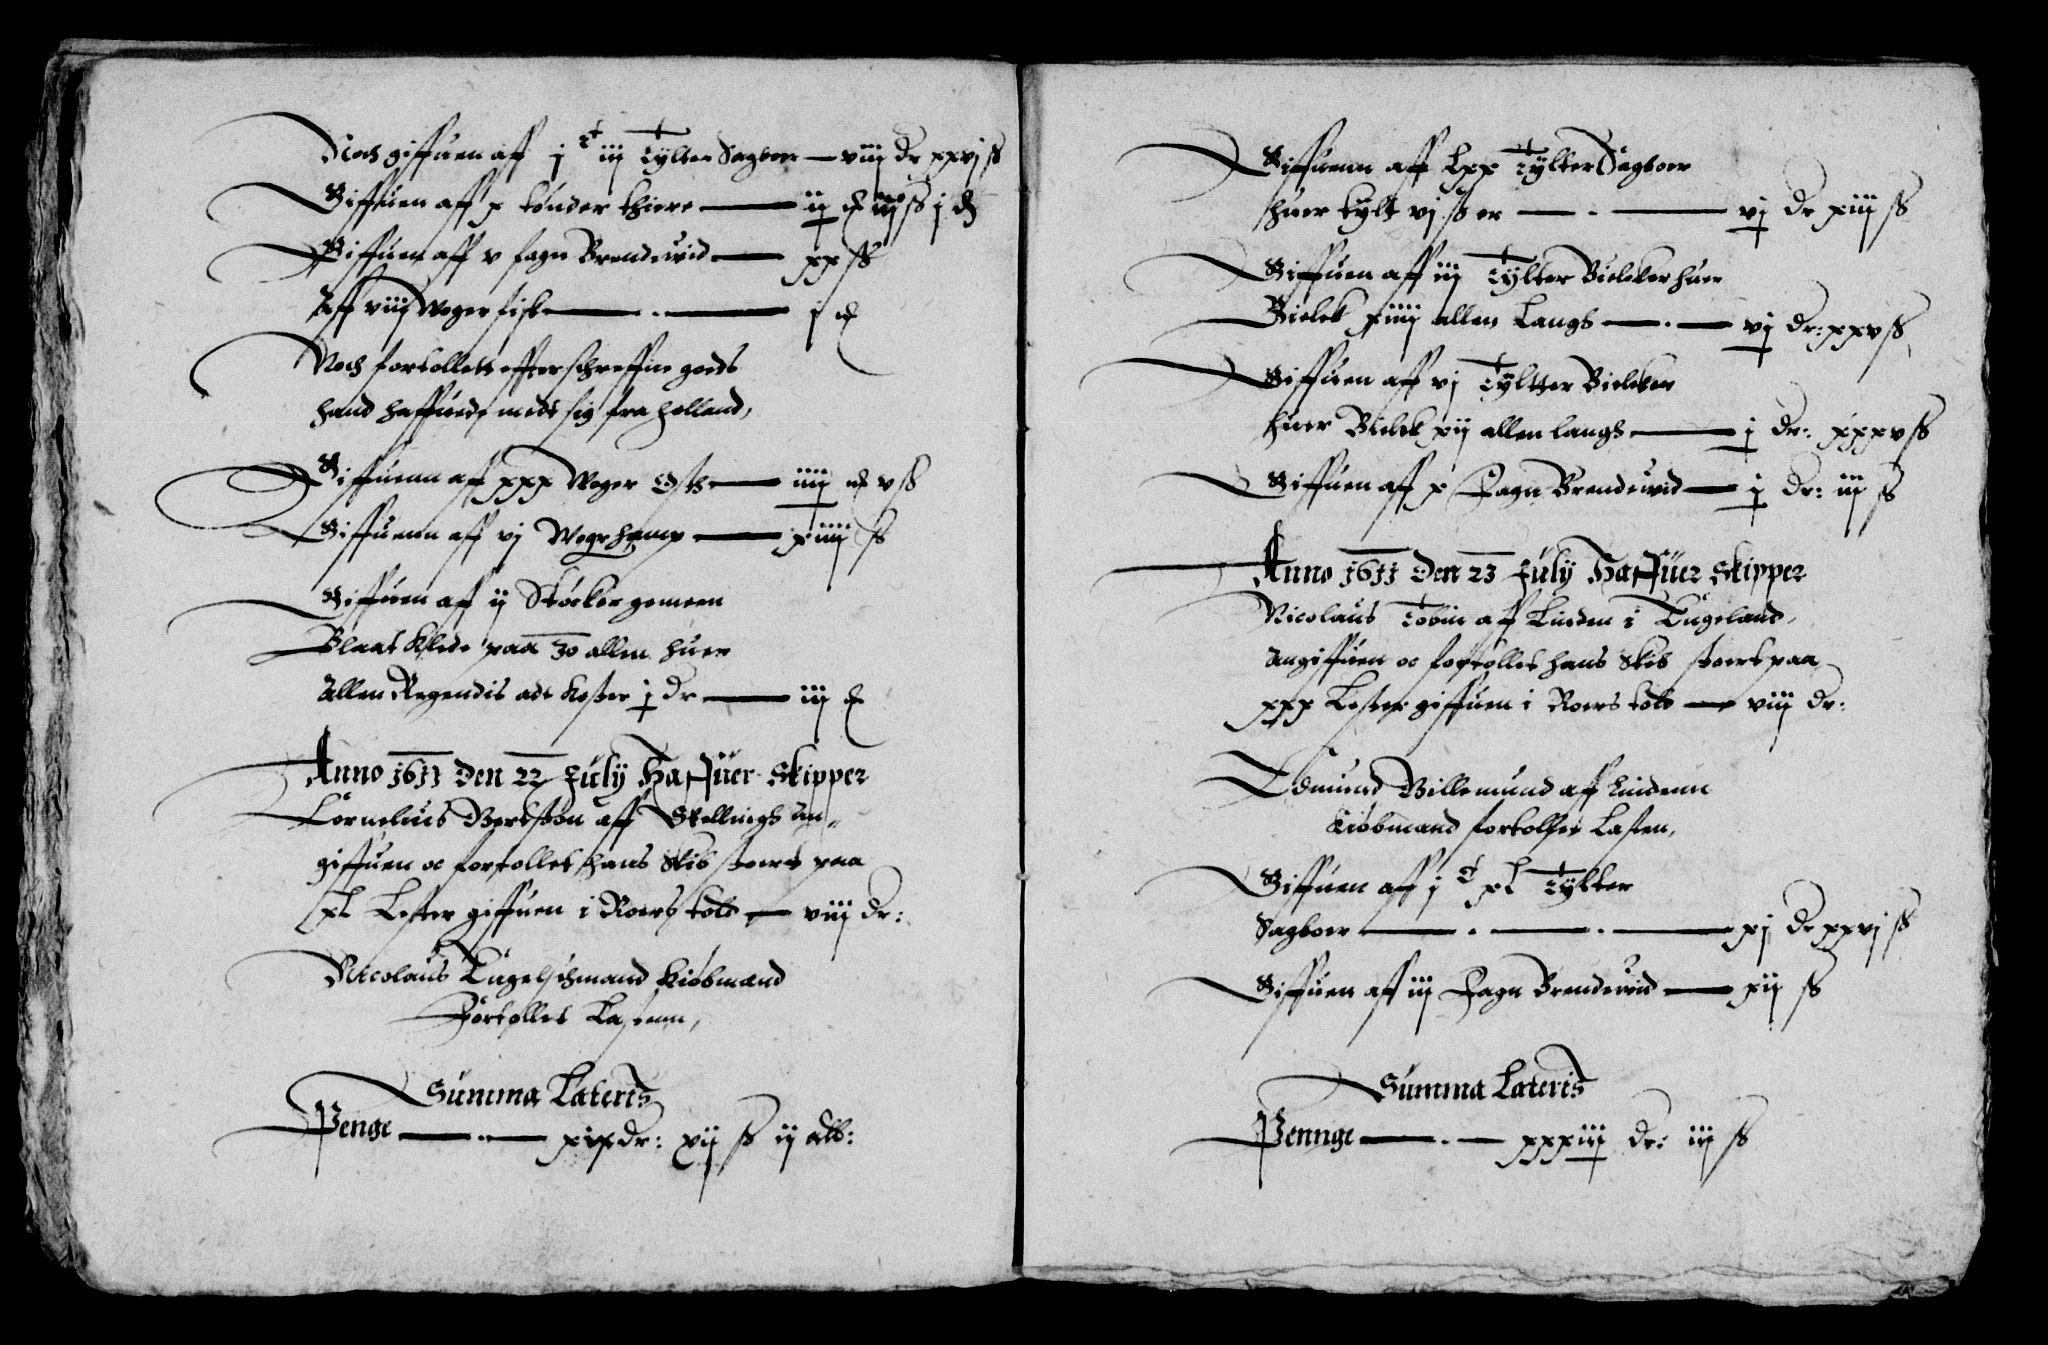 Noch giffuen aff j C iij Tylter Sagboer — viij dr xxvj ß
Giffuen aff x tønder thiere — ij
Giffuen aff v fagn Brendeuid — xx ß
Aff viij Woger fisk — j
Noch fortollett effterschreffne goeds
hand haffuede medt sig fra holland,
Giffuenn aff xxx Woger Osth — iiij v ß
Giffuenn aff vj Woge hamp — xiiij ß
Giffuen aff ij Støcker gemeen
Blaat Klede paa 30 allen huer
Allen Regendis adt koster j dr — iij
Anno 1611 Den 22 July Haffuer Skipper
Cornelius aff Skellings an-
giffuen oc fortollet hans Skib stoert paa
xl Lester giffuen i Roers told — viij dr:
Nicolaus Engelschmand Kiøbmand
Fortollet Lastenn,
Summa Lateris
Penge — xix dr: xij ß ij alb:
Giffuenn aff Lxx Tylter Sagboer
huer tylt vj ß er — vj dr xiij ß
Giffuen aff iij Tylter Bielcker huer
Bielck xiiij allen Langs — vj dr: xxv ß
Giffuen aff vj Tyltter Bielcker
huer Bielck xij allen langs — j dr: xxxv ß
Giffuen aff x Fagn Brendeuid — j dr: iij ß
Anno 1611 Den 23 July Haffuer Skipper
Nicolaus Tobin aff Linden i Engeland,
Angiffuen oc fortollet hans Skib stoert paa
xxx Lester giffuen i Roers told — viij dr:
Edmund Villemund aff Lindenn
Kiøbmand fortollet Lasten,
Giffuen aff j C xl Tylter
Sagboer — xj dr xxvj ß
Giffuen aff iij Fagn Brendeuid — xij ß
Summa Lateris
Pennge — xxxiij dr: iij ß